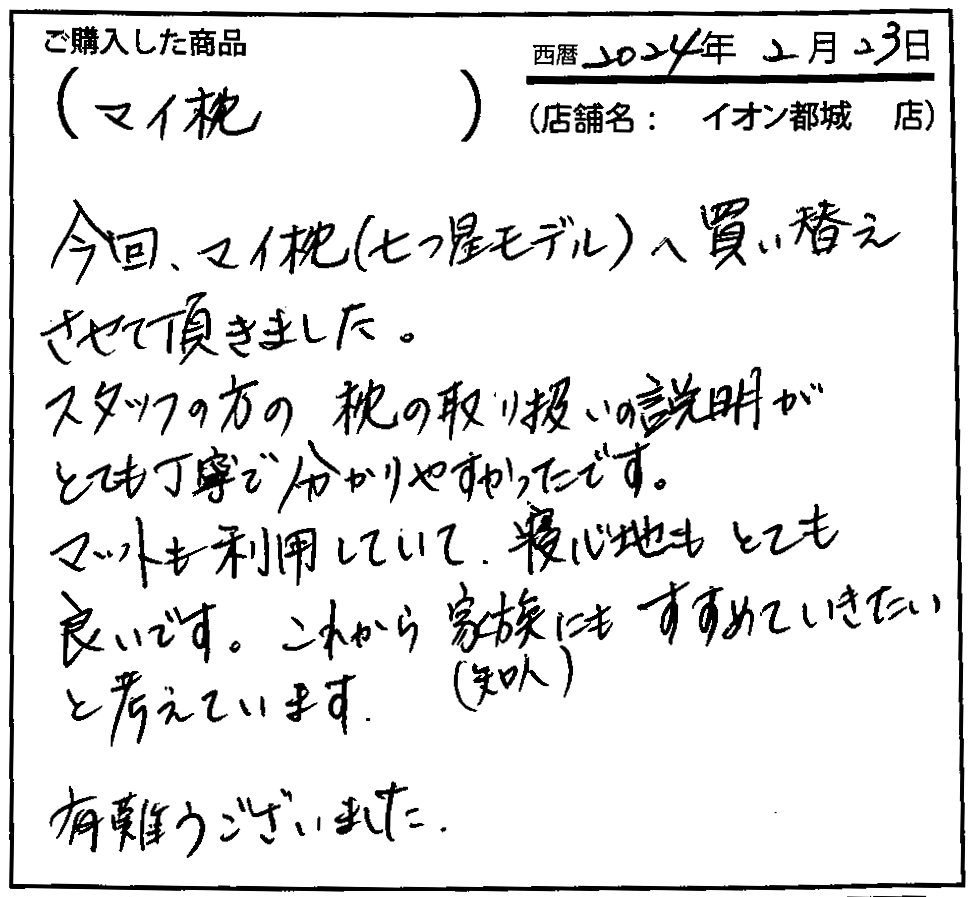 ご購入した商品
西暦 2024年 2月 23日
(マイ枕)
(店舗名： イオン都城 店)
今回、マイ枕(七つ星モデル)へ買い替え
させて頂きました。
スタッフの方の 枕の取り扱いの説明が
とても丁寧で分かりやすかったです。
マットも利用していて、寝心地もとても
良いです。これから家族にもすすめていきたい
(知人)
と考えています.
有難うございました.